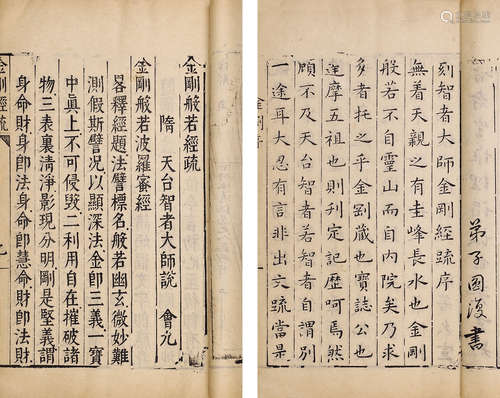 弟子國浚書
刻智者大師金剛經疏序
無着天親之有圭峰長水也金剛
般若不自靈山而自内院矣乃求
多者托之乎金剛藏也寶誌公也
達摩五祖也則刋定記歷呵焉然
頋不及天台智者若智者自謂別
一途耳大忍有言非出六疏當是
金剛般若經疏
隋 天台智者大師說 會九
金剛般若波羅蜜經
畧釋經題法譬標名般若幽玄微妙難
測假斯譬況以顯深法金卽三義一寶
中眞上不可侵毀二利用自在摧破諸
物三表裏清淨影現分明剛是堅義爲
身命財卽法身命卽慧命財卽法財
金剛經疏